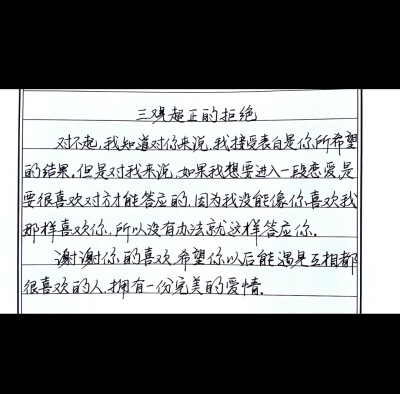 三观超正的拒绝
对不起,我知道对你来说,我接受表白是你所希望
的结果。但是对我来说,如果我想要进入一段恋爱,是
要很喜欢对方才能答应的,因为我没能像你喜欢我
那样喜欢你,所以没有办法就这样答应你。
谢谢你的喜欢,希望你以后能遇见互相都
很喜欢的人,拥有一份完美的爱情。